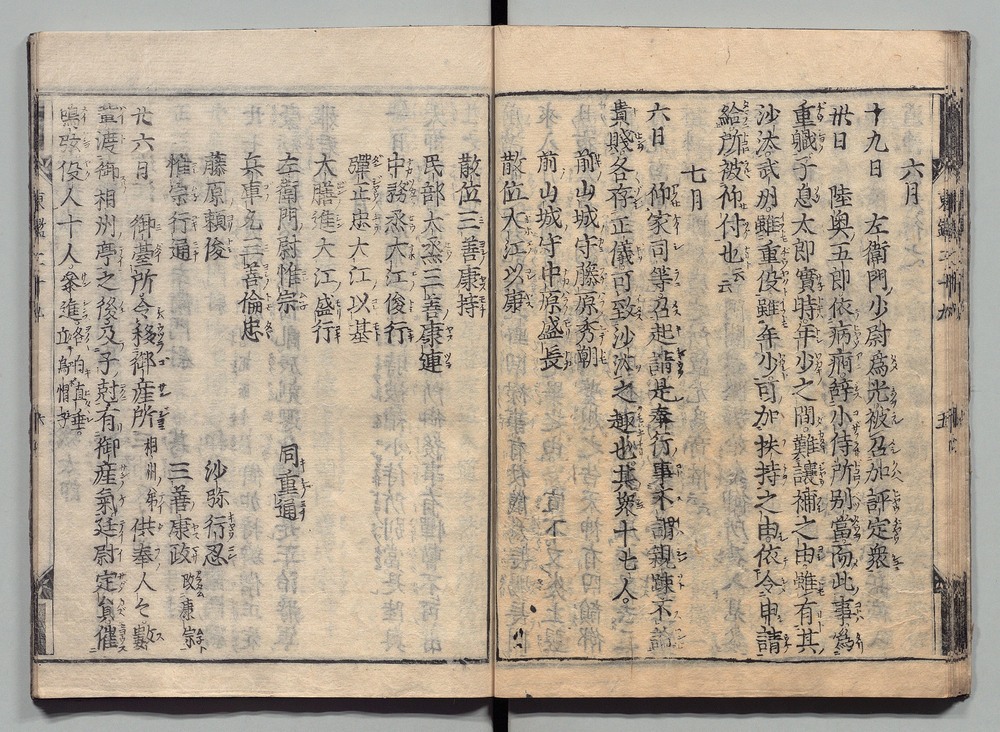 六月
十九日 左衛門少尉爲光被召加評定衆
卅日 陸奥五郎依病痾辞小侍所別當而此事爲
重軄子息太郎實時年少之間難讓補之由雖有其
沙汰武州雖重役雖年少可加扶持之由依令申請
給所被仰付也云云
七月
六日 仰家司等召起請是奉行事不謂親踈不論
貴賤各存正儀可致沙汰之趣也其衆十七人
前山城守藤原秀朝
前山城守中原盛長
散位大江以康
散位三善康持
民部大丞三善康連
中務丞大江俊行
彈正忠大江以基
大膳進大江盛行
左衛門尉惟宗 同重通
兵庫允三善倫忠
藤原頼俊 沙弥行忍
惟宗行通 三善康政 政康宗
廿六日 御臺所令移御産所 相州亭 供奉人々數
輩渡御相州亭之後及子尅有御産氣廷尉定員催
鳴弦役人十人參進 各白直垂立烏帽子
東鑑